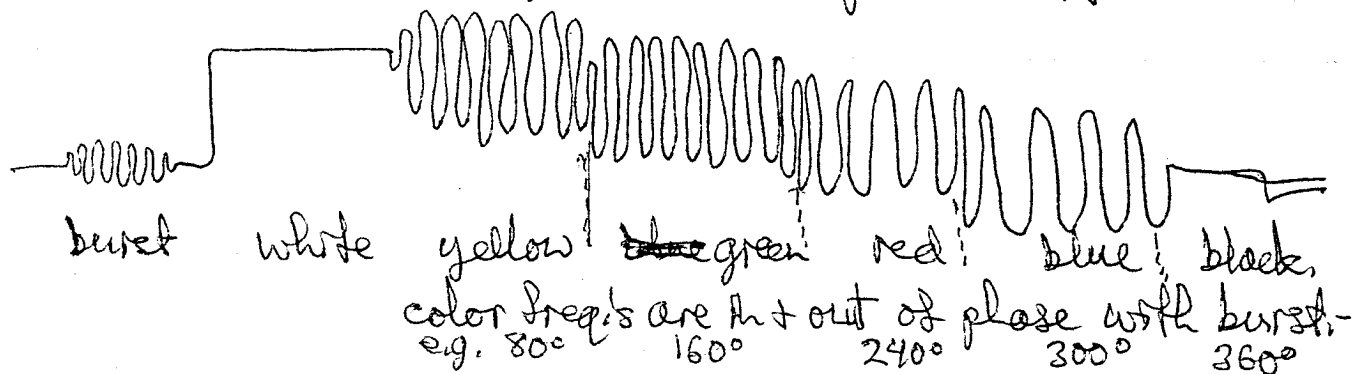 burst white yellow green red blue black.
color freq's are in + out of phase with burst.-
e.g. 80° 160° 240° 300° 360°